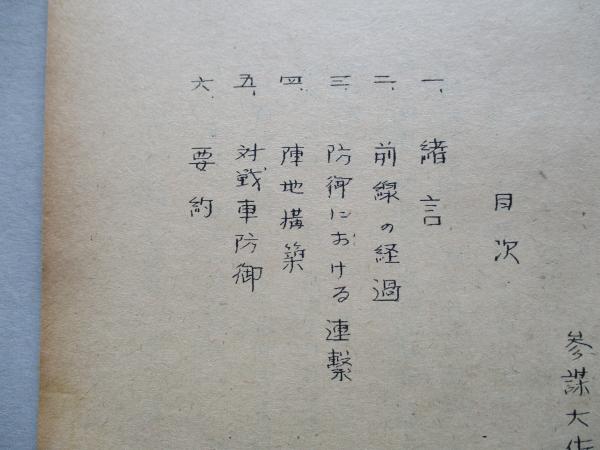 参謀大佐
目次
一、緒言
二、前線の経過
三、防御における連繋
四、陣地構築
五、対戦車防御
六、要約